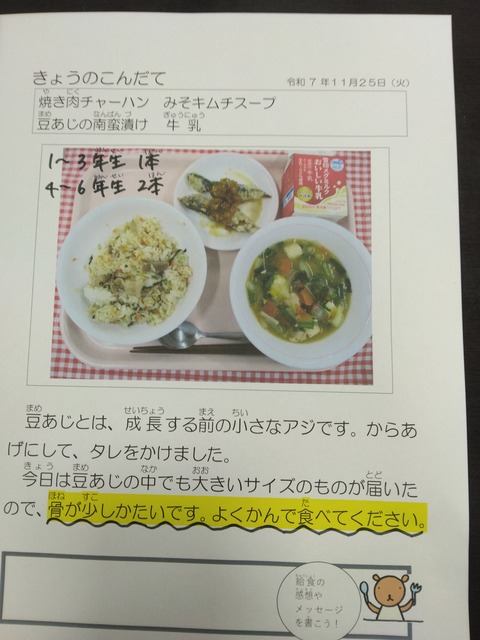 きょうのこんだて
令和7年11月25日（火）
焼き肉チャーハン　みそキムチスープ
豆あじの南蛮漬け　牛乳
1〜3年生 1本
4〜6年生 2本
おいしい牛乳
豆あじとは、成長する前の小さなアジです。からあ
げにして、タレをかけました。
今日は豆あじの中でも大きいサイズのものが届いた
ので、骨が少しかたいです。よくかんで食べてください。
給食の
感想や
メッセージ
を書こう！